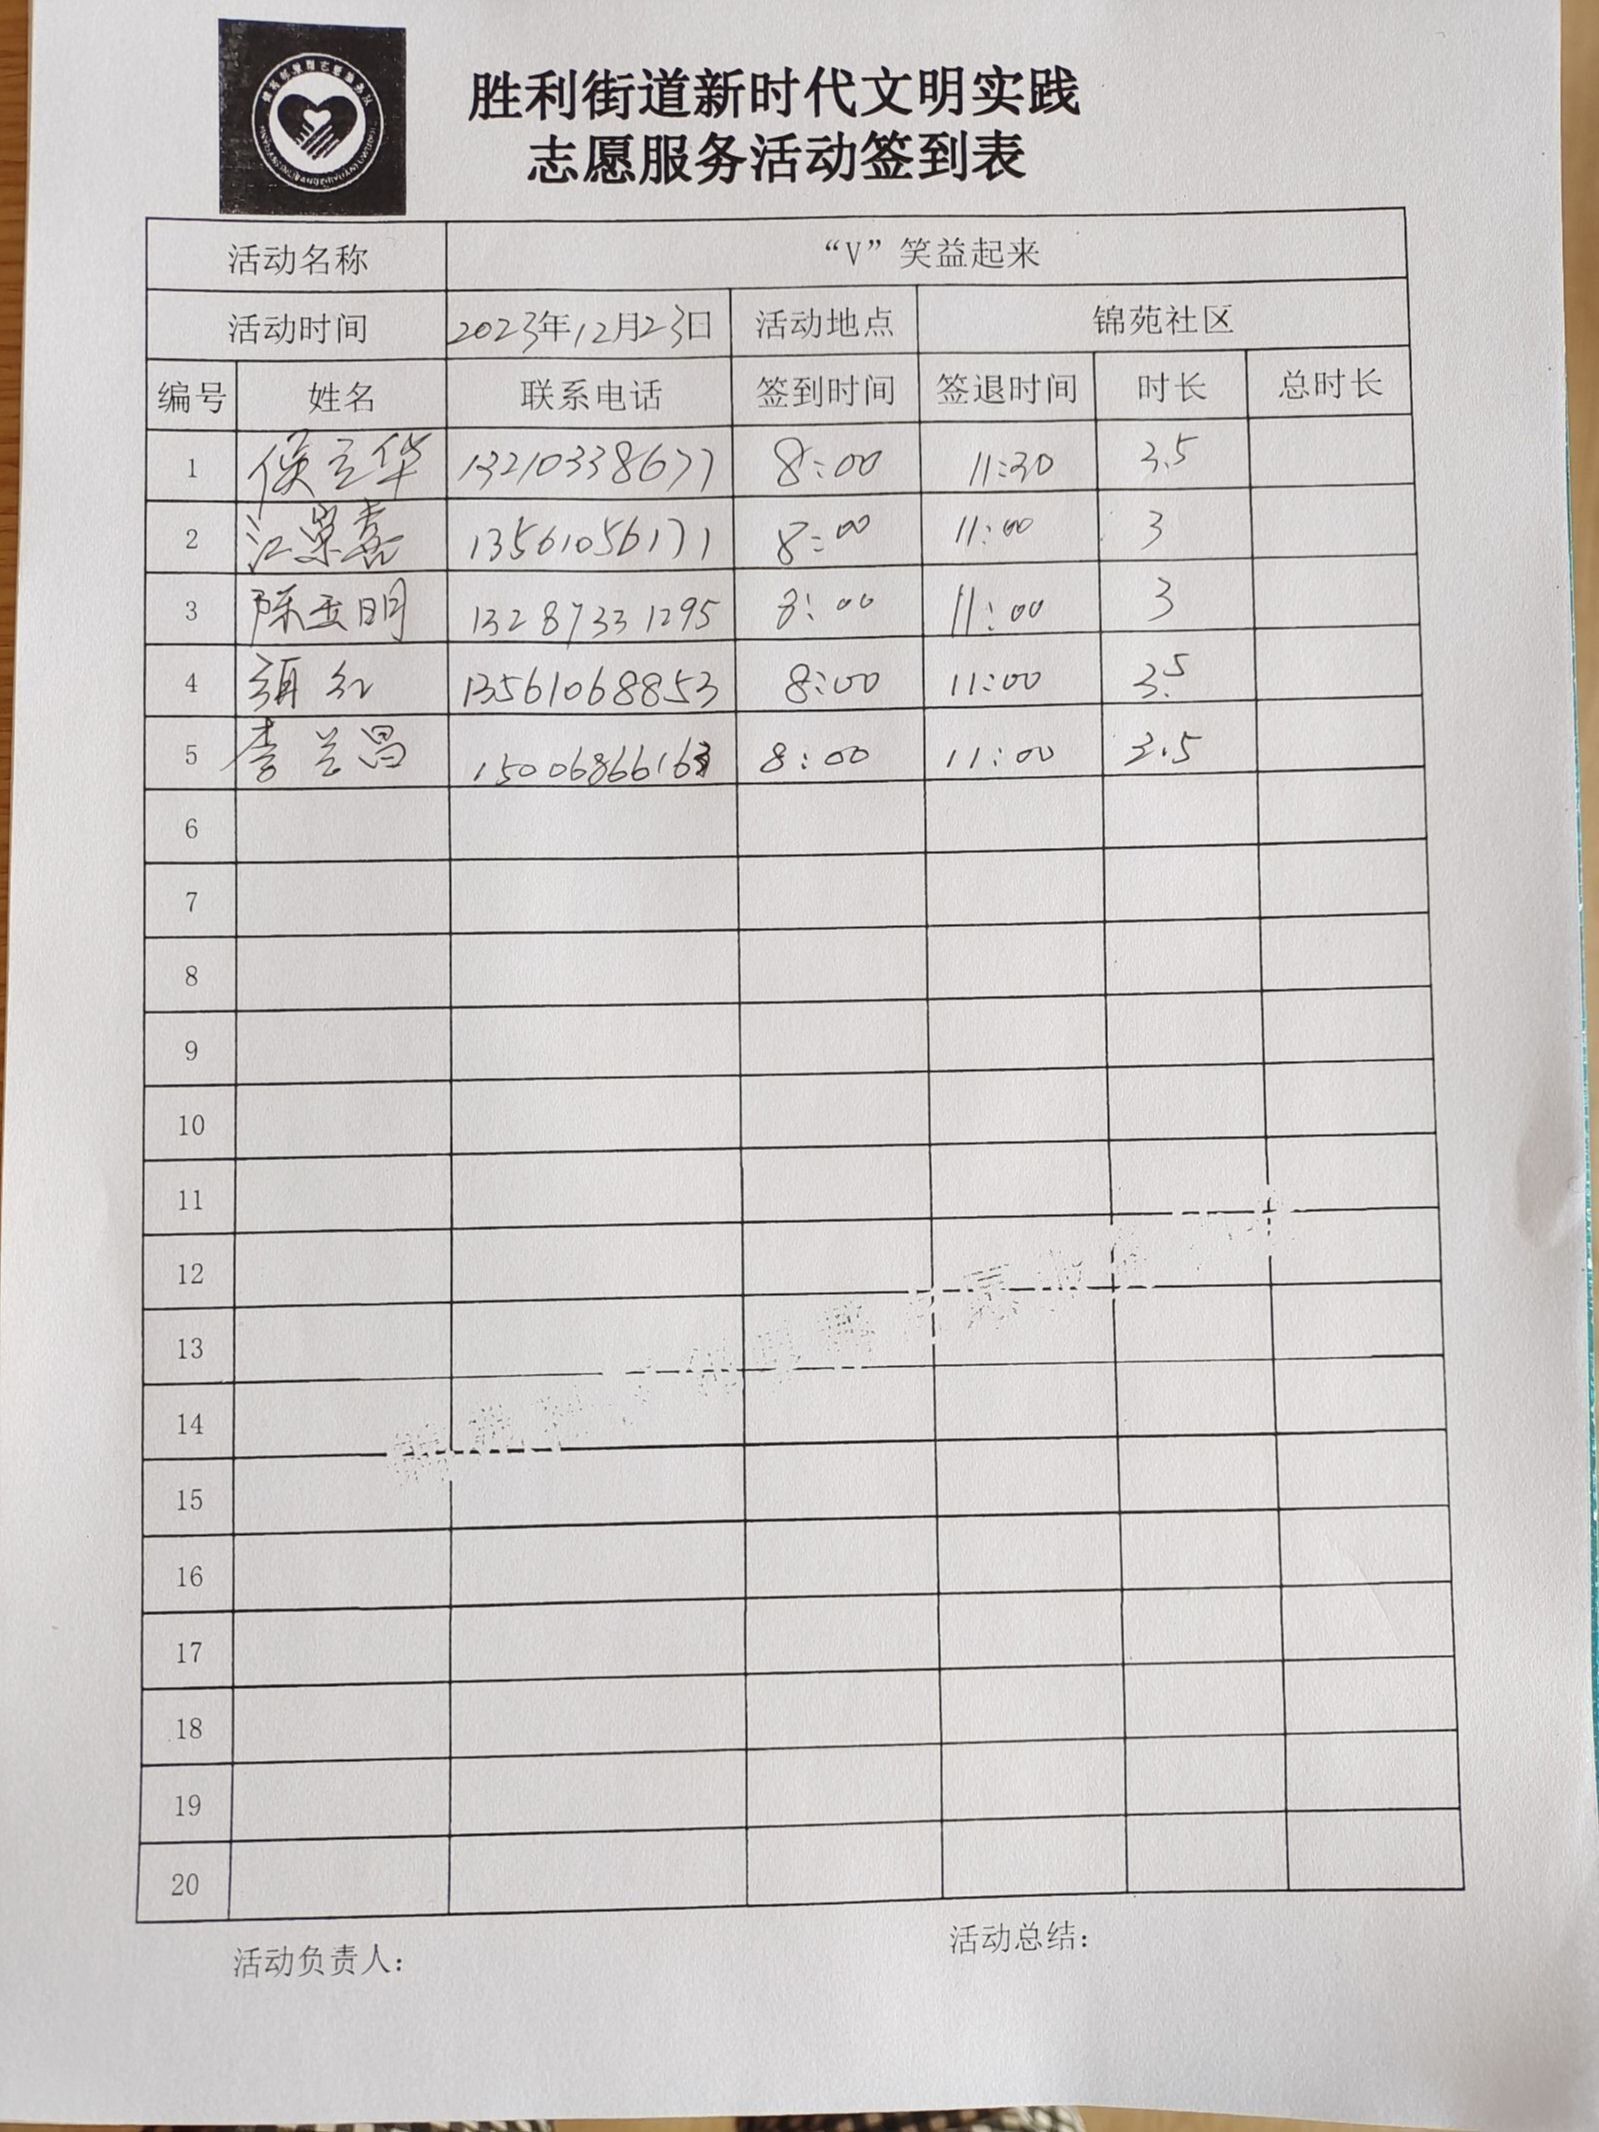 胜利街道新时代文明实践
志愿服务活动签到表
活动名称 “V”笑益起来
活动时间 2023年12月23日 活动地点 锦苑社区
编号 姓名 联系电话 签到时间 签退时间 时长 总时长
1 侯立华 13210338677 8:00 11:30 3.5
2 江崇喜 13561056171 8:00 11:00 3
3 陈玉明 13287331295 8:00 11:00 3
4 红 13561068853 8:00 11:00 3.5
5 李兰昌 15006866163 8:00 11:00 3.5
6
7
8
9
10
11
12
13
14
15
16
17
18
19
20
活动负责人: 活动总结: